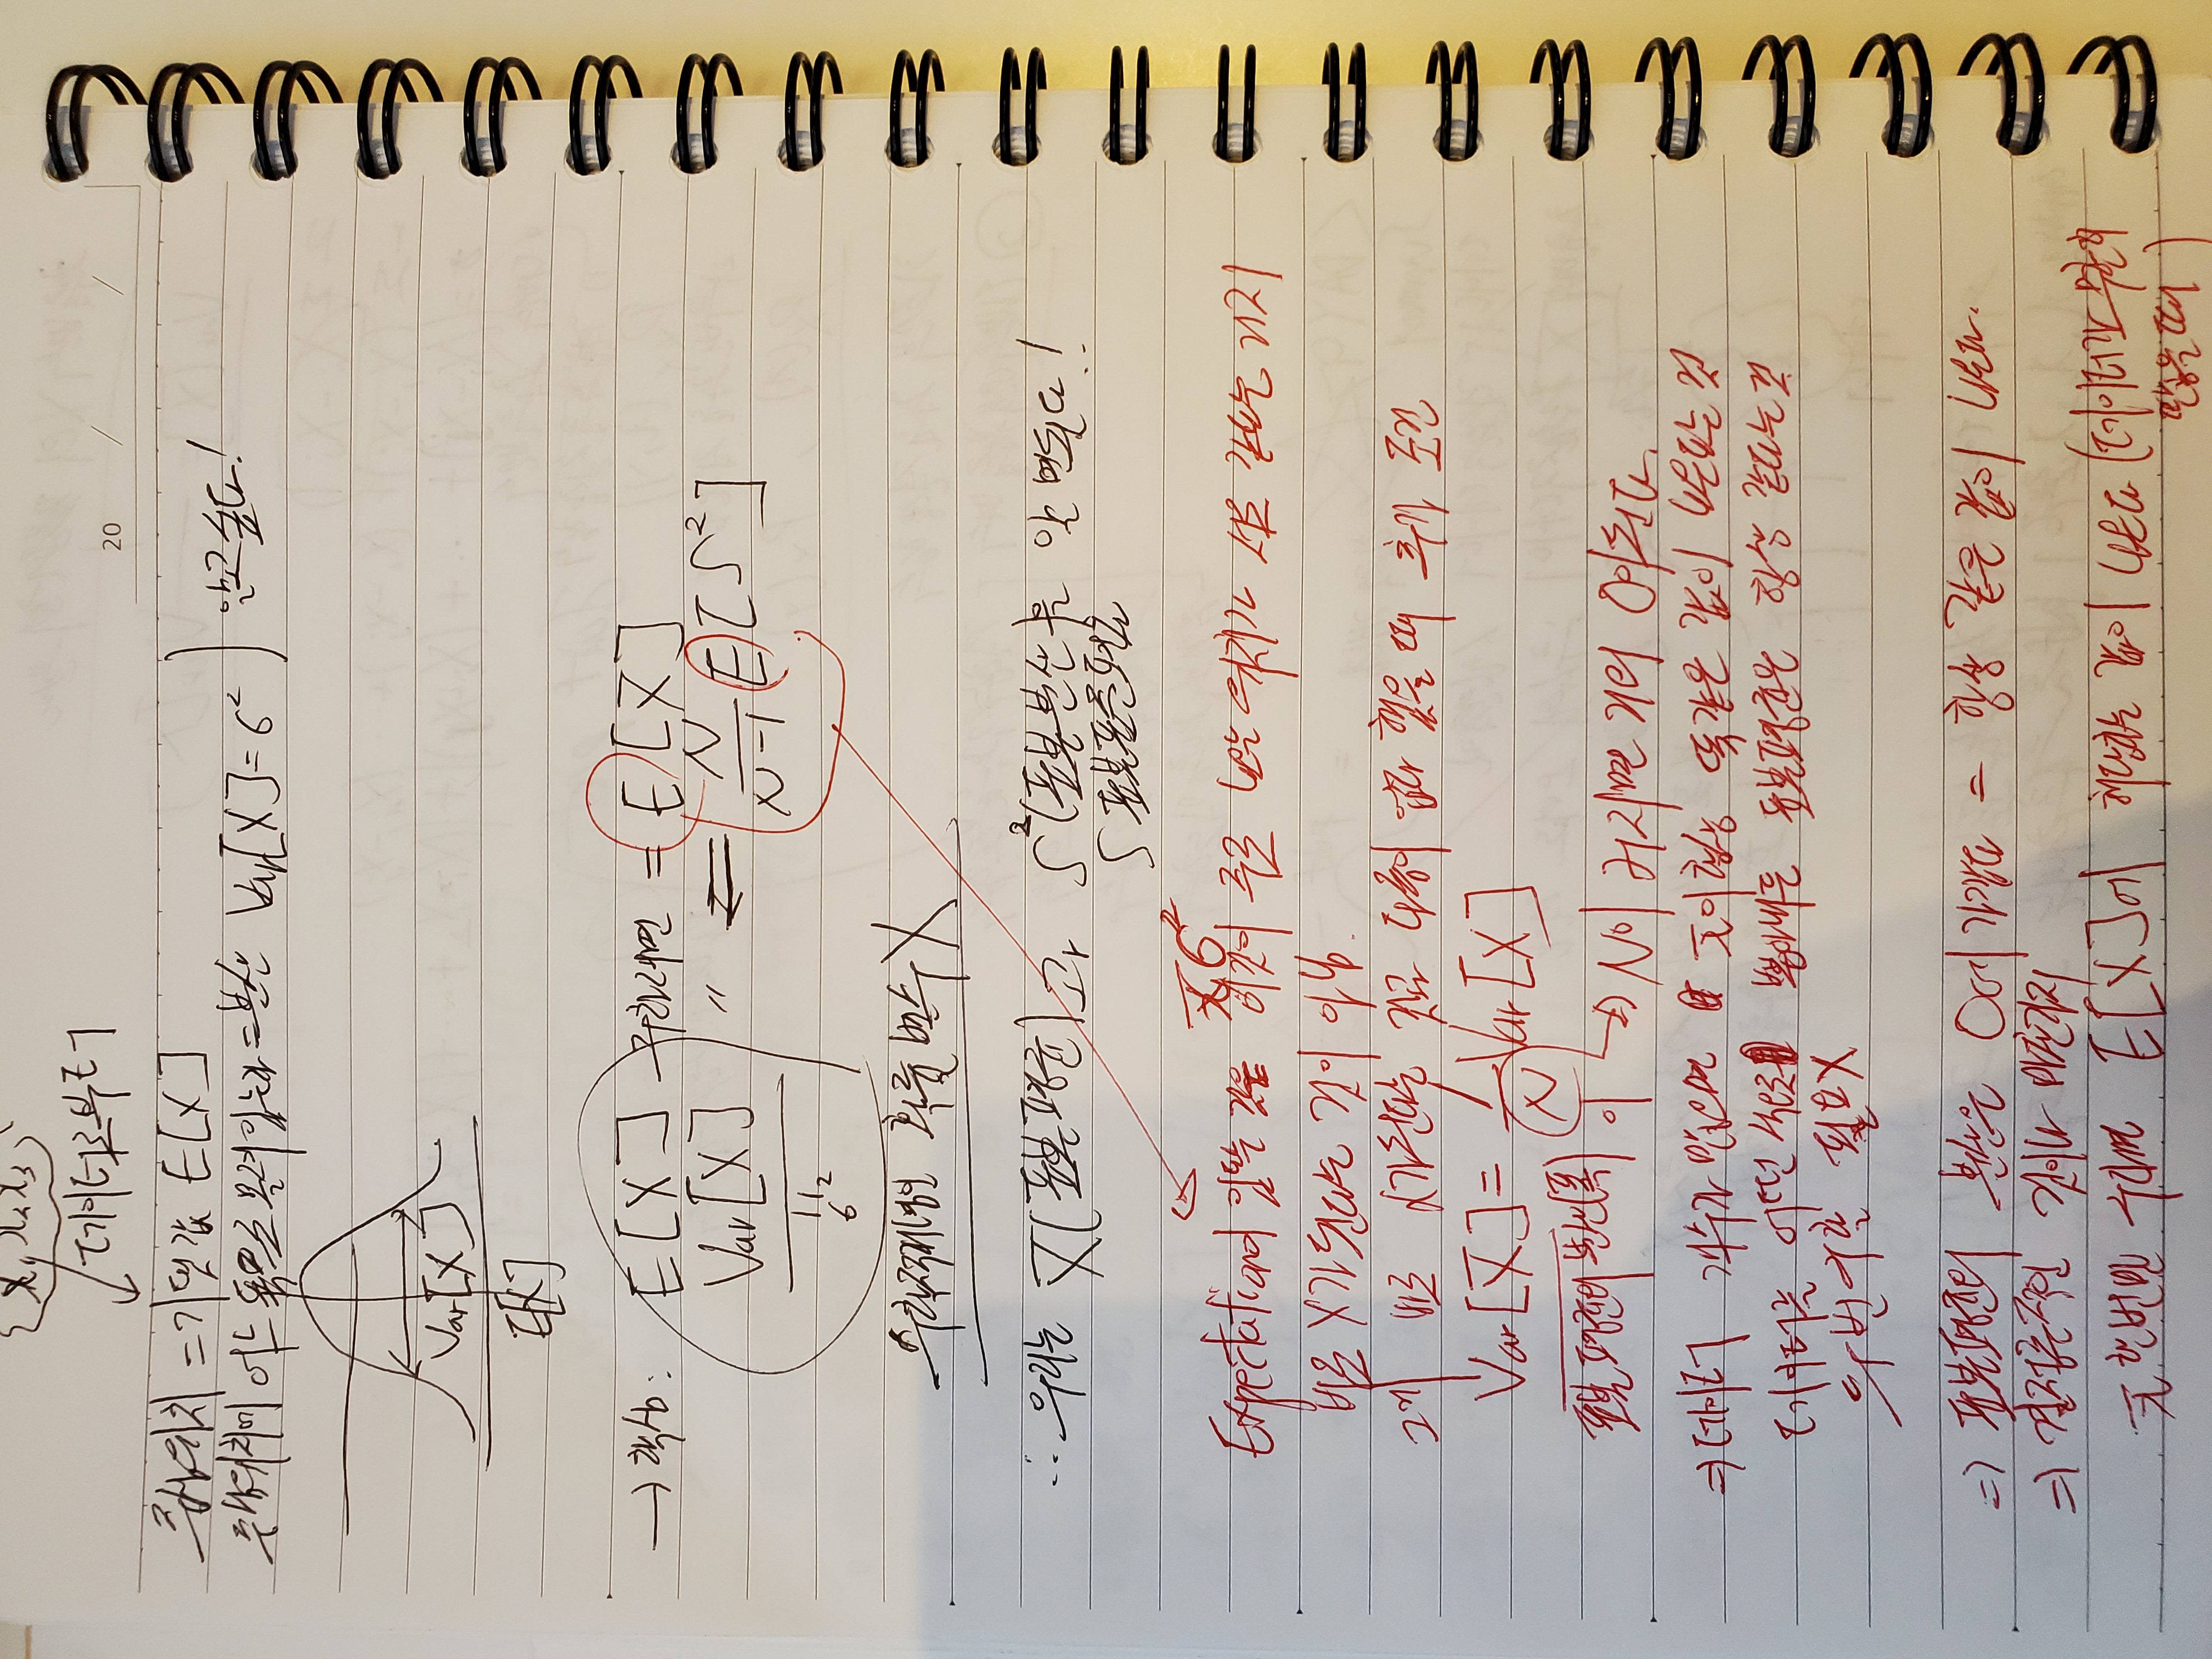 {x₁, x₂ x₃}
데이터로부터
20 / /
중심위치 = 기댓값 E[X]
중심위치에 어느 폭으로 몰려있는가 = 분산 Var[X] = σ² ) 알고싶다!
Var[X]
E[X]
→ 핵심: E[X] 구하려면 = E[X̄]
Var[X] 〃 ⇐ N/(N-1) E[S²]
||
σ²
수학적개념인 확률변수 X
∴ 우리는 X̄(표본평균)과 S²(표본분산)을 알면된다!
S 표본표준편차
x̄ σ²
Expectation이 같은 이것이 주로 나오는 위치가 서로 같다는 거지
바로 X가 된다는 것이 아님.
그게 바로 X가된다는 것과 다름이 없다 했을 때 추가 조건
Var[X̄] = 1/N Var[X]
표본평균의 분산(폭)이 → N이 커지면 거의 0이된다.
⇒ 데이터 개수가 많으면 x̄이 항상 똑같은 값이 나온다는 것
데이터를 어떤 식으로 뽑아내든 표본평균은 항상 같다는 것
두번 구할 필요X
⇒ 표본평균의 분산은 0에 가깝다 = 항상 같은 값이 나온다.
⇒ 결정론적인 것이나 마찬가지
x̄ 한번만 구하면 E[X]에 해당하는 값이 나온다 (데이터가 무한히
많을 때)